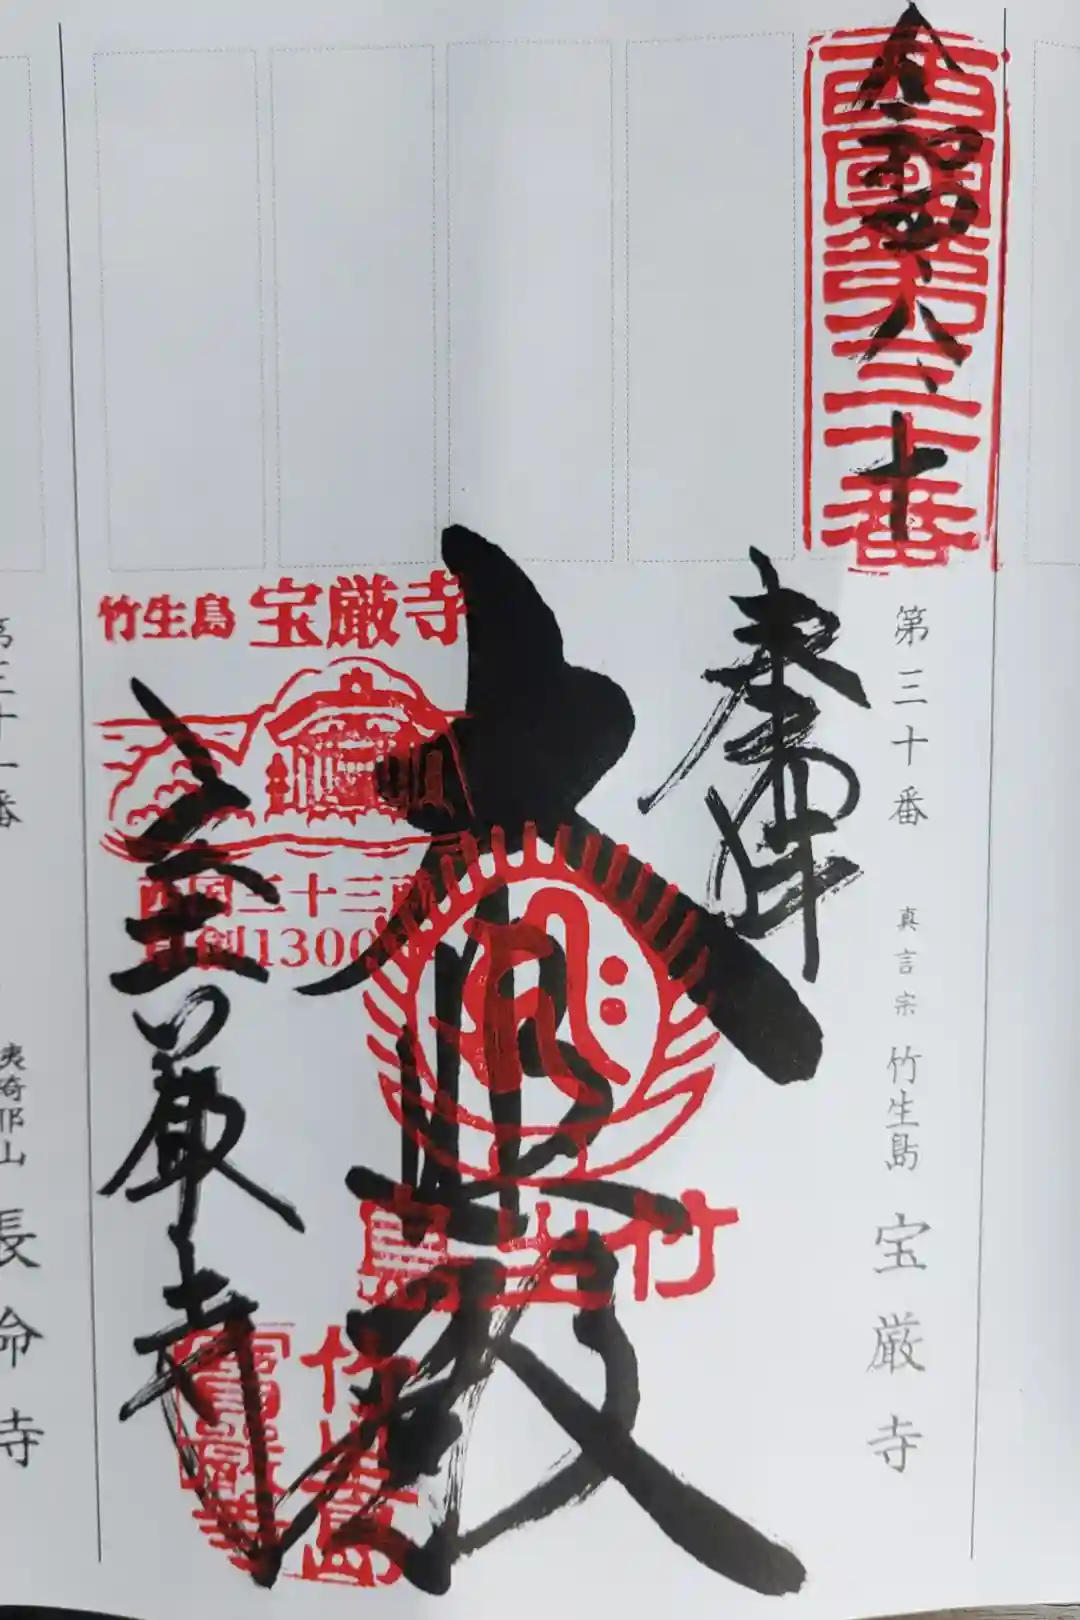 西國第三十番
第三十番 真言宗 竹生島 宝厳寺
奉拝
大悲殿
竹生島
竹生島 宝厳寺
西国三十三所
草創1300年
宝厳寺
竹生島
寶厳寺
第三十一番 姨綺耶山 長命寺